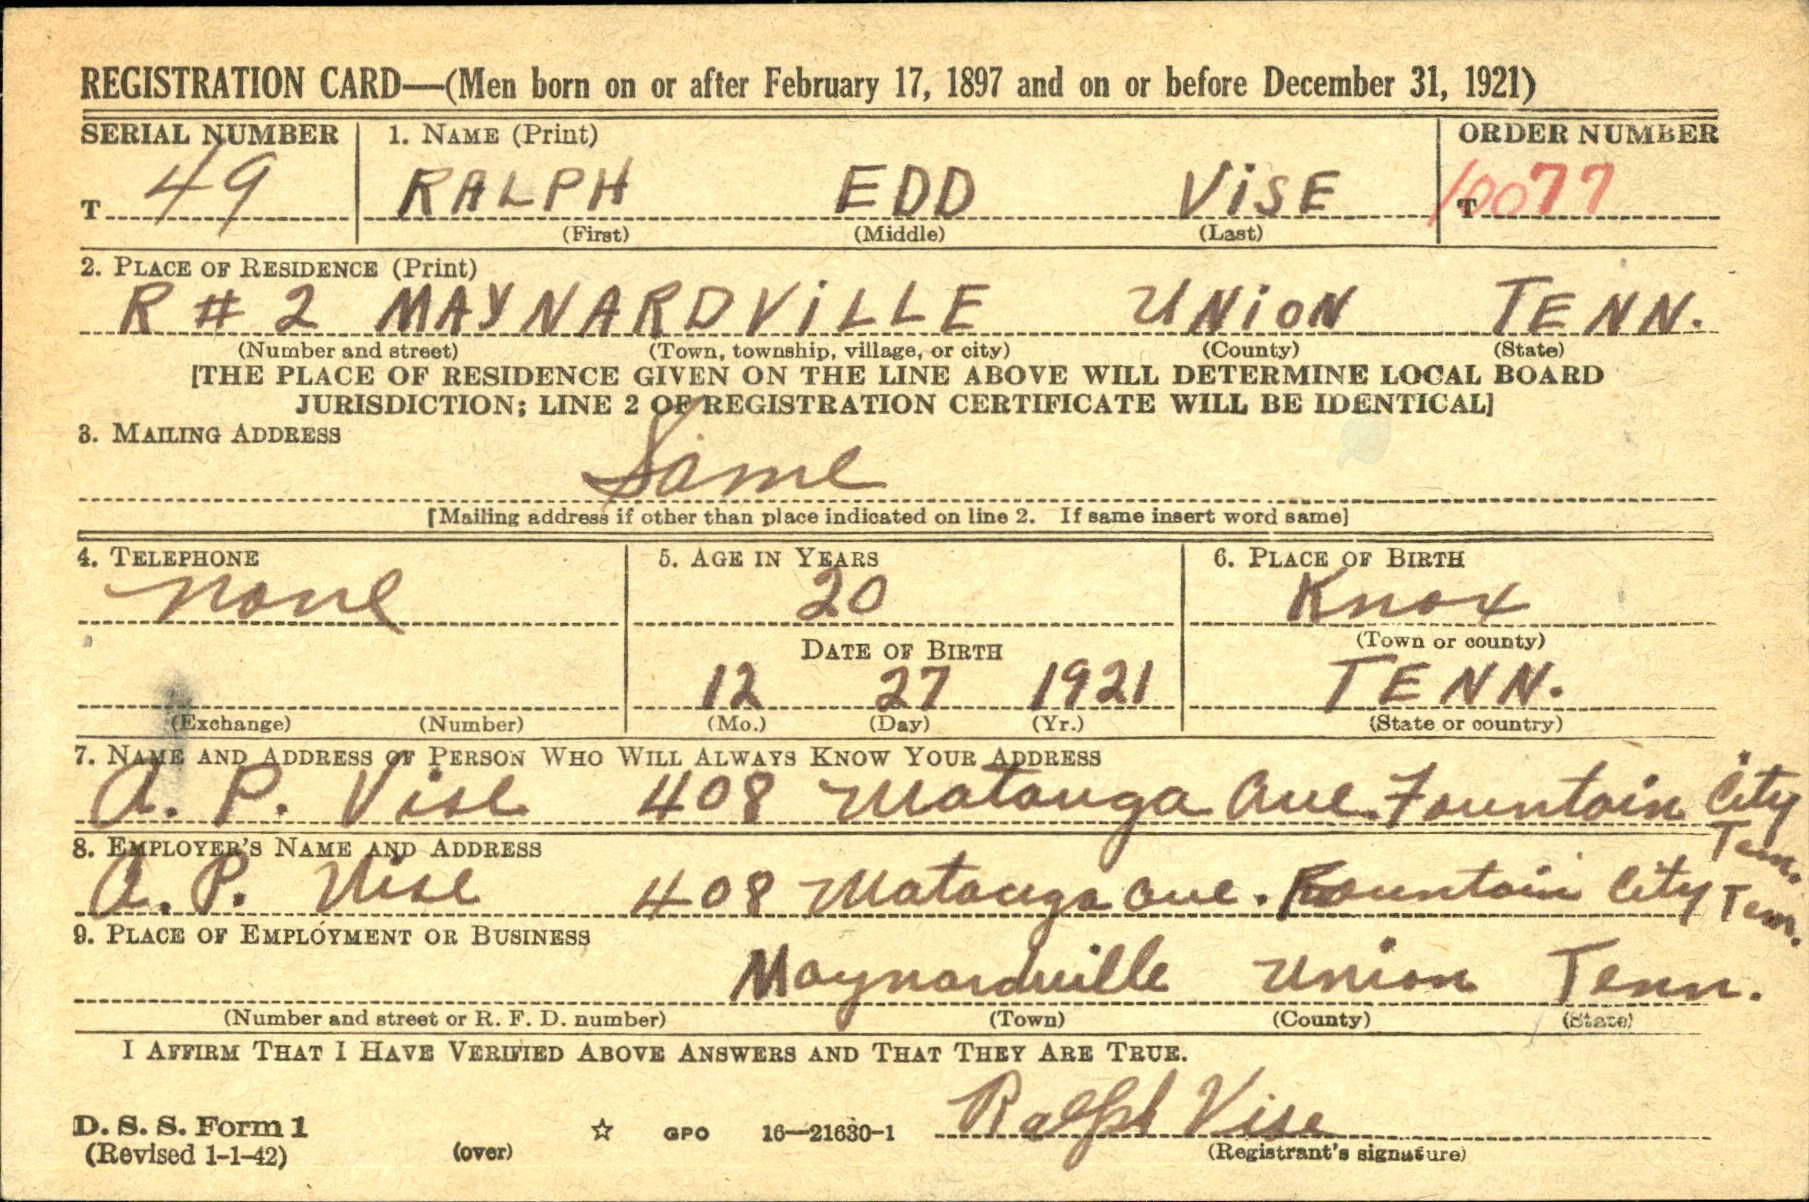 REGISTRATION CARD—(Men born on or after February 17, 1897 and on or before December 31, 1921)
SERIAL NUMBER 1. NAME (Print) ORDER NUMBER
T 49 RALPH EDD VISE T 10077
(First) (Middle) (Last)
2. PLACE OF RESIDENCE (Print)
R # 2 MAYNARDVILLE UNION TENN.
(Number and street) (Town, township, village, or city) (County) (State)
[THE PLACE OF RESIDENCE GIVEN ON THE LINE ABOVE WILL DETERMINE LOCAL BOARD
JURISDICTION; LINE 2 OF REGISTRATION CERTIFICATE WILL BE IDENTICAL]
3. MAILING ADDRESS
Same
[Mailing address if other than place indicated on line 2. If same insert word same]
4. TELEPHONE 5. AGE IN YEARS 6. PLACE OF BIRTH
none 20 Knox
(Town or county)
DATE OF BIRTH
12 27 1921 TENN.
(Exchange) (Number) (Mo.) (Day) (Yr.) (State or country)
7. NAME AND ADDRESS OF PERSON WHO WILL ALWAYS KNOW YOUR ADDRESS
A. P. Vise 408 Watauga Ave. Fountain City
Tenn.
8. EMPLOYER'S NAME AND ADDRESS
A. P. Vise 408 Watauga Ave. Fountain City Tenn.
9. PLACE OF EMPLOYMENT OR BUSINESS
Maynardville Union Tenn.
(Number and street or R. F. D. number) (Town) (County) (State)
I AFFIRM THAT I HAVE VERIFIED ABOVE ANSWERS AND THAT THEY ARE TRUE.
Ralph Vise
D. S. S. Form 1 GPO 16—21630-1
(Revised 1-1-42) (over) (Registrant's signature)